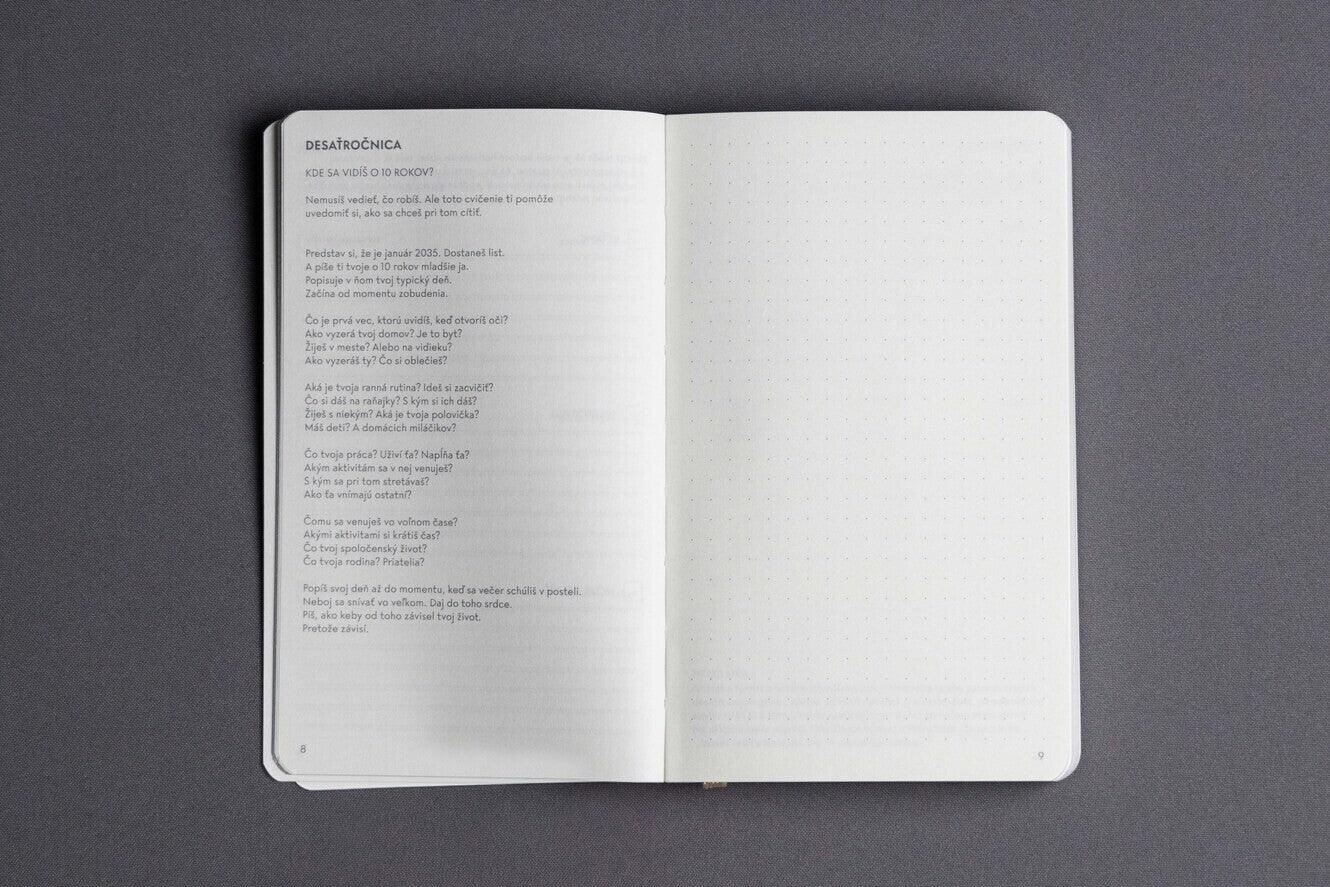 DESAŤROČNICA
KDE SA VIDÍŠ O 10 ROKOV?
Nemusíš vedieť, čo robíš. Ale toto cvičenie ti pomôže
uvedomiť si, ako sa chceš pri tom cítiť.
Predstav si, že je január 2035. Dostaneš list.
A píše ti tvoje o 10 rokov mladšie ja.
Popisuje v ňom tvoj typický deň.
Začína od momentu zobudenia.
Čo je prvá vec, ktorú uvidíš, keď otvoríš oči?
Ako vyzerá tvoj domov? Je to byt?
Žiješ v meste? Alebo na vidieku?
Ako vyzeráš ty? Čo si oblečieš?
Aká je tvoja ranná rutina? Ideš si zacvičiť?
Čo si dáš na raňajky? S kým si ich dáš?
Žiješ s niekým? Aká je tvoja polovička?
Máš deti? A domácich miláčikov?
Čo tvoja práca? Uživí ťa? Napĺňa ťa?
Akým aktivitám sa v nej venuješ?
S kým sa pri tom stretávaš?
Ako ťa vnímajú ostatní?
Čomu sa venuješ vo voľnom čase?
Akými aktivitami si krátiš čas?
Čo tvoj spoločenský život?
Čo tvoja rodina? Priatelia?
Popíš svoj deň až do momentu, keď sa večer schúliš v posteli.
Neboj sa snívať vo veľkom. Daj do toho srdce.
Píš, ako keby od toho závisel tvoj život.
Pretože závisí.
8
9